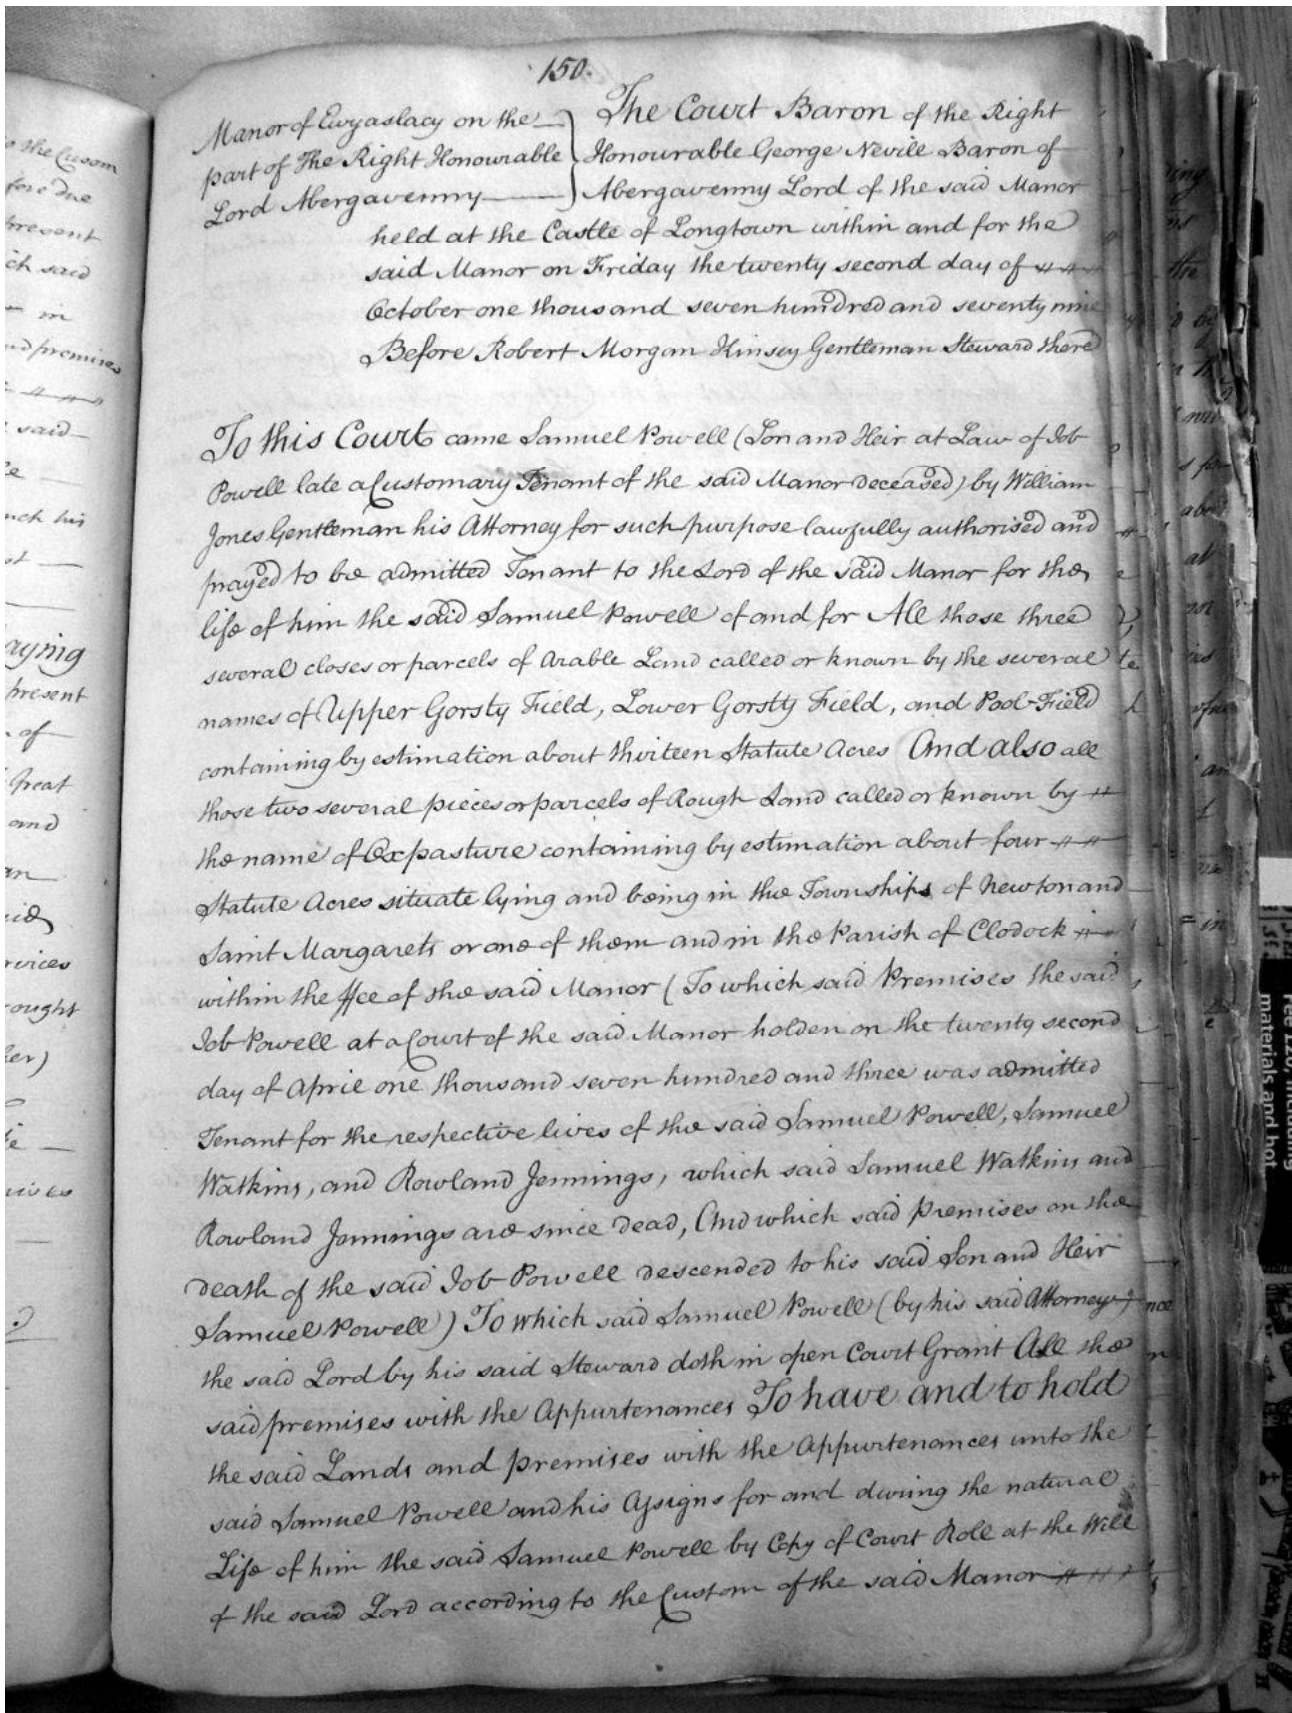 150.
Manor of Ewyaslacy on the
part of The Right Honourable
Lord Abergavenny
The Court Baron of the Right
Honourable George Nevill Baron of
Abergavenny Lord of the said Manor
held at the Castle of Longtown within and for the
said Manor on Friday the twenty second day of
October one thousand seven hundred and seventy nine
Before Robert Morgan Kinsey Gentleman Steward there
To this Court came Samuel Powell (Son and Heir at Law of Job
Powell late a Customary Tenant of the said Manor deceased) by William
Jones Gentleman his Attorney for such purpose lawfully authorised and
prayed to be admitted Tenant to the Lord of the said Manor for the
life of him the said Samuel Powell of and for All those three
several closes or parcels of Arable Land called or known by the several
names of Upper Gorsty Field, Lower Gorsty Field, and Pool Field
containing by estimation about thirteen Statute Acres And also all
those two several pieces or parcels of Rough Land called or known by
the name of Oxpasture containing by estimation about four
Statute Acres situate lying and being in the Townships of Newton and
Saint Margarets or one of them and in the Parish of Clodock
within the ffee of the said Manor (To which said Premises the said
Job Powell at a Court of the said Manor holden on the twenty second
day of April one thousand seven hundred and three was admitted
Tenant for the respective lives of the said Samuel Powell, Samuel
Watkins, and Rowland Jennings, which said Samuel Watkins and
Rowland Jennings are since dead, And which said premises on the
death of the said Job Powell descended to his said Son and Heir
Samuel Powell) To which said Samuel Powell (by his said Attorney)
the said Lord by his said Steward doth in open Court Grant All the
said premises with the Appurtenances To have and to hold
the said Lands and premises with the Appurtenances unto the
said Samuel Powell and his Assigns for and during the natural
Life of him the said Samuel Powell by Copy of Court Roll at the Will
of the said Lord according to the Custom of the said Manor